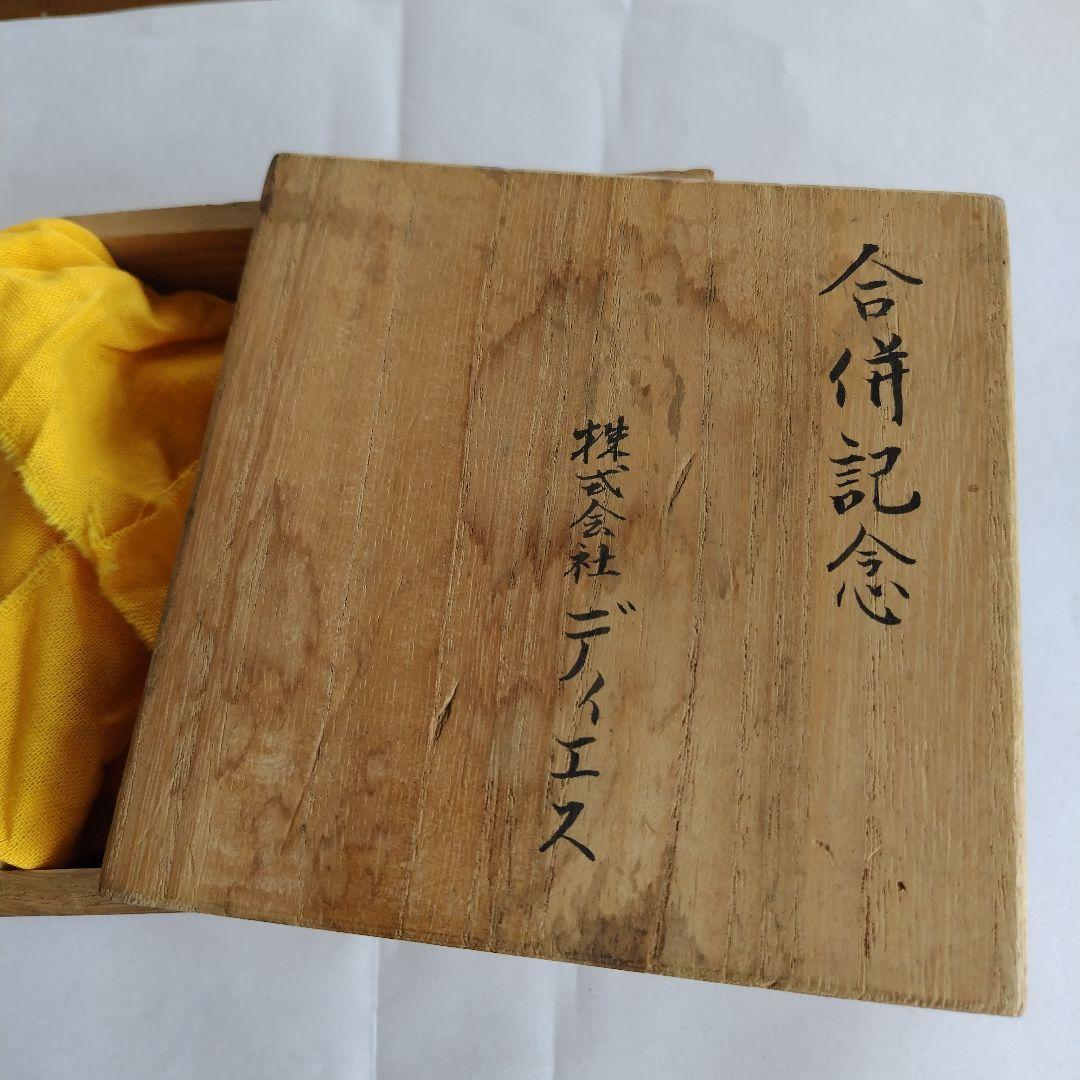 合併記念
株式会社ディエス